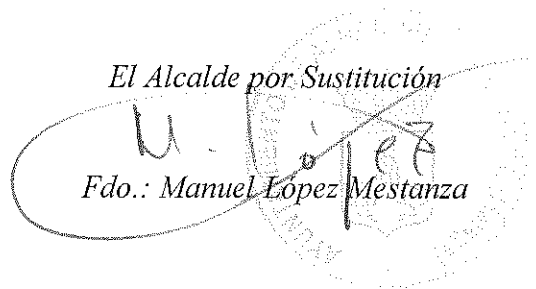 El Alcalde por Sustitución
M. López
Fdo.: Manuel López Mestanza